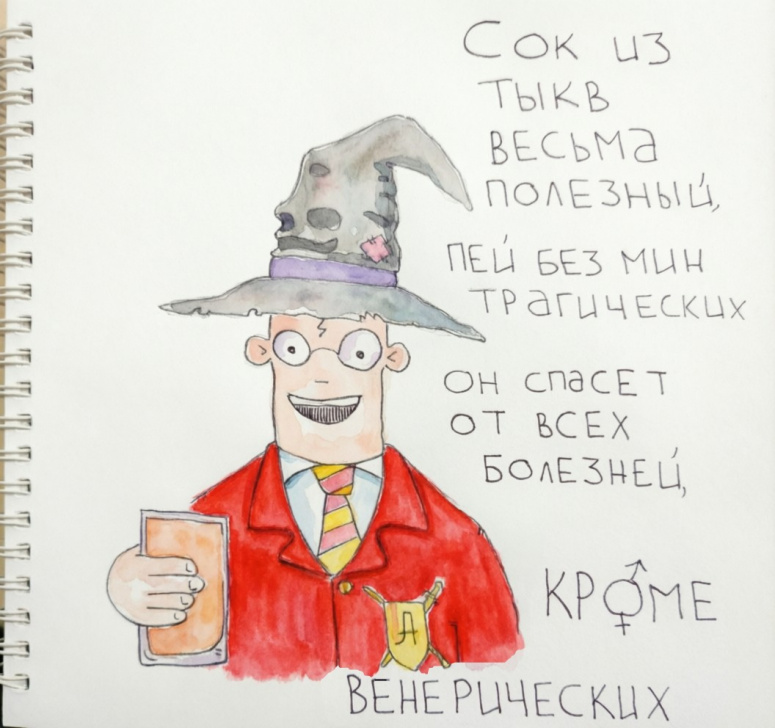 Сок из
тыкв
весьма
полезный,
пей без мин
трагических
он спасет
от всех
болезней,
кроме
венерических
А